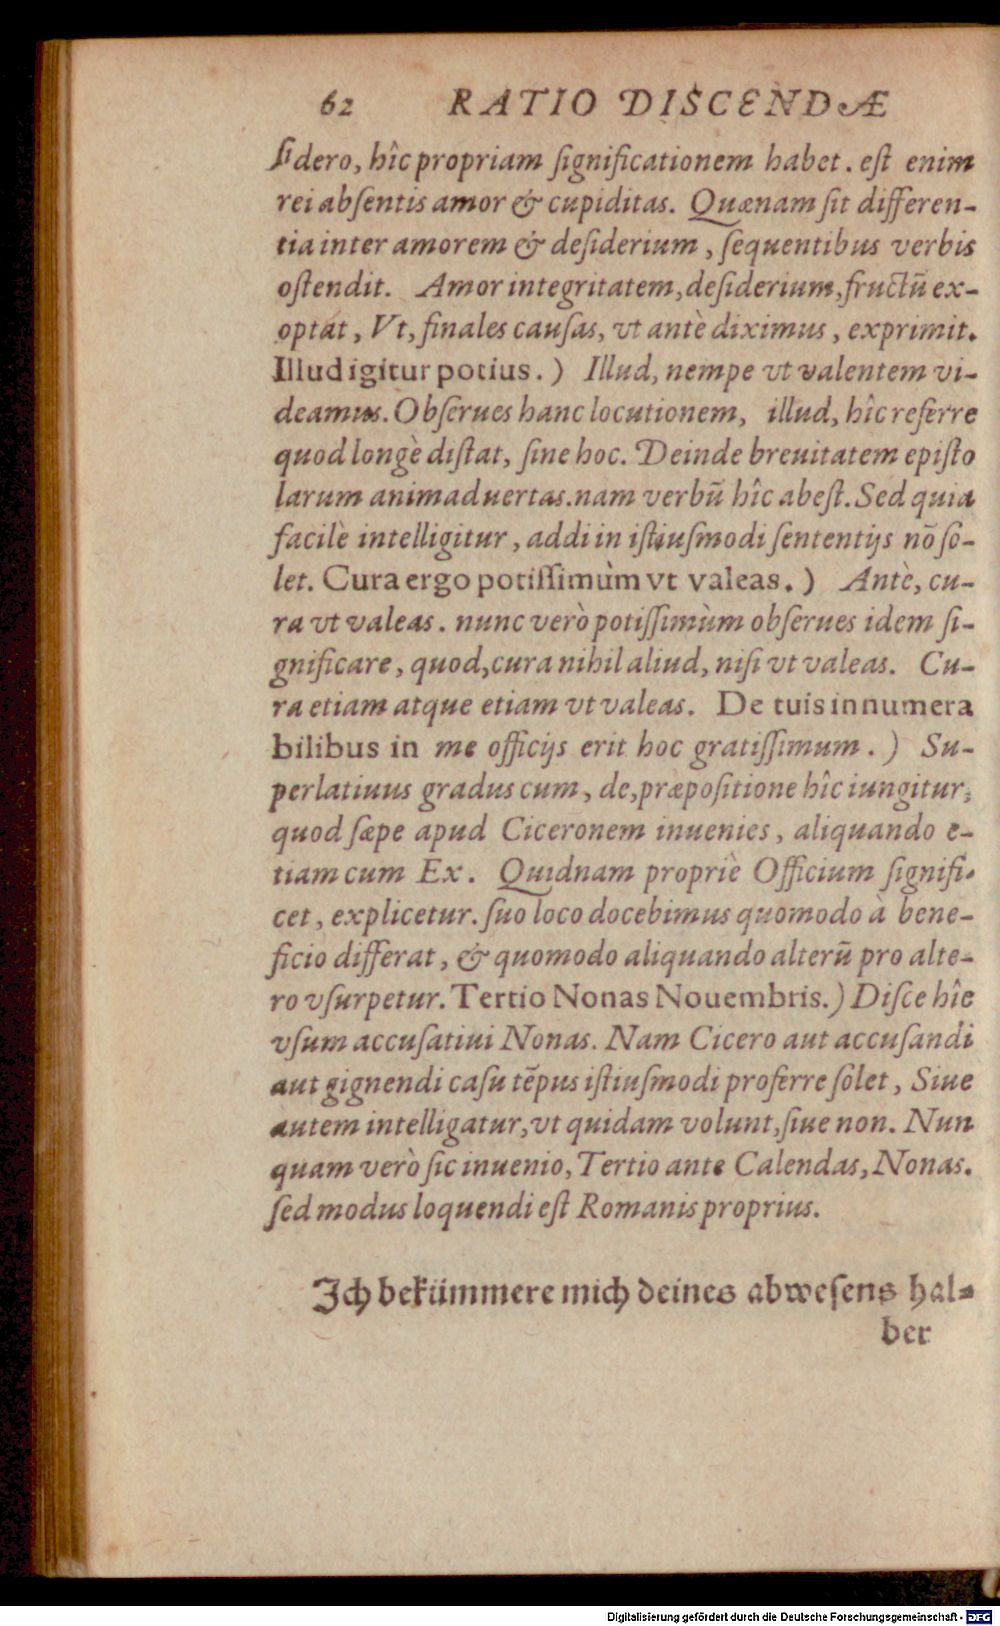 62 RATIO DISCENDÆ
ſidero, hîc propriam ſignificationem habet. eſt enim
rei abſentis amor & cupiditas. Quænam ſit differen-
tia inter amorem & deſiderium, ſequentibus verbis
oſtendit. Amor integritatem, deſiderium, fructū ex-
optat, Vt, finales cauſas, vt antè diximus, exprimit.
Illud igitur potius.) Illud, nempe vt valentem vi-
deamus. Obſerues hanc locutionem, illud, hîc referre
quod longè diſtat, ſine hoc. Deinde breuitatem epiſto
larum animaduertas. nam verbū hîc abeſt. Sed quia
facilè intelligitur, addi in iſtiuſmodi ſententijs nō ſo-
let. Cura ergo potiſſimùm vt valeas.) Antè, cu-
ra vt valeas. nunc verò potiſſimùm obſerues idem ſi-
gnificare, quod, cura nihil aliud, niſi vt valeas. Cu-
ra etiam atque etiam vt valeas. De tuis innumera
bilibus in me officijs erit hoc gratiſſimum.) Su-
perlatiuus gradus cum, de, præpoſitione hîc iungitur,
quod ſæpe apud Ciceronem inuenies, aliquando e-
tiam cum Ex. Quidnam propriè Officium ſignifi-
cet, explicetur. ſuo loco docebimus quomodo à bene-
ficio differat, & quomodo aliquando alterū pro alte-
ro vſurpetur. Tertio Nonas Nouembris.) Diſce hîc
vſum accuſatiui Nonas. Nam Cicero aut accuſandi
aut gignendi caſu tēpus iſtiuſmodi proferre ſolet, Siue
autem intelligatur, vt quidam volunt, ſiue non. Nun
quam verò ſic inuenio, Tertio ante Calendas, Nonas.
ſed modus loquendi eſt Romanis proprius.
Ich bekümmere mich deines abweſens hal-
ber
Digitalisierung gefördert durch die Deutsche Forschungsgemeinschaft - DFG